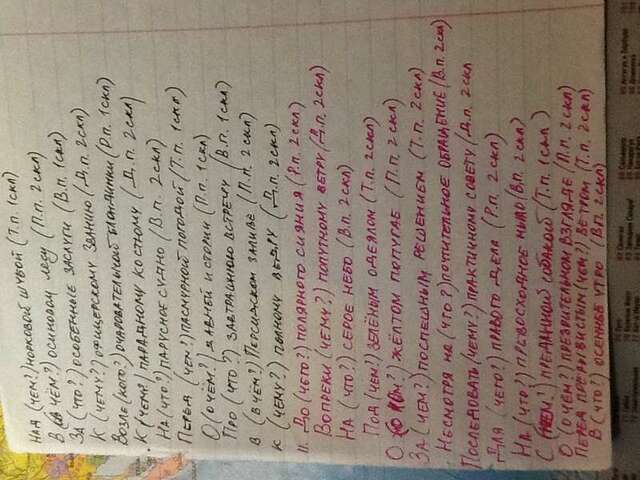 Над (чем?) норковой шубой (Т.п. 1скл)
В (в чём?) осиновом лесу (П.п. 2скл)
За (что?) особенные заслуги (В.п. 1скл)
К (чему?) офицерскому званию (Д.п. 2скл)
Возле (кого?) очаровательной блондинки (Р.п. 1скл)
К (чему?) парадному костюму (Д.п. 2скл)
На (что?) парусное судно (В.п. 2скл)
Перед (чем?) пасмурной погодой (Т.п. 1скл)
О (о чём?) давней истории (П.п. 1скл)
Про (что?) завтрашнюю встречу (В.п. 1скл)
В (в чём?) Персидском заливе (П.п. 2скл)
К (чему?) полному ведру (Д.п. 2скл)
11. До (чего?) полярного сияния (Р.п. 2скл)
Вопреки (чему?) попутному ветру (Д.п. 2скл)
На (что?) серое небо (В.п. 2скл)
Под (чем?) зелёным одеялом (Т.п. 2скл)
О (о ком?) жёлтом попугае (П.п. 2скл)
За (чем?) поспешным решением (Т.п. 2скл)
Несмотря на (что?) почтительное обращение (В.п. 2скл)
Последовать (чему?) практичному совету (Д.п. 2скл
Для (чего?) правого дела (Р.п. 2скл)
На (что?) превосходное мыло (В.п. 2скл)
С (чем?) преданной собакой (Т.п. 1скл)
О (о чём?) презрительном взгляде (П.п. 2скл)
Перед прерывистым (чем?) ветром (Т.п. 2скл)
В (что?) осеннее утро (В.п. 2скл)